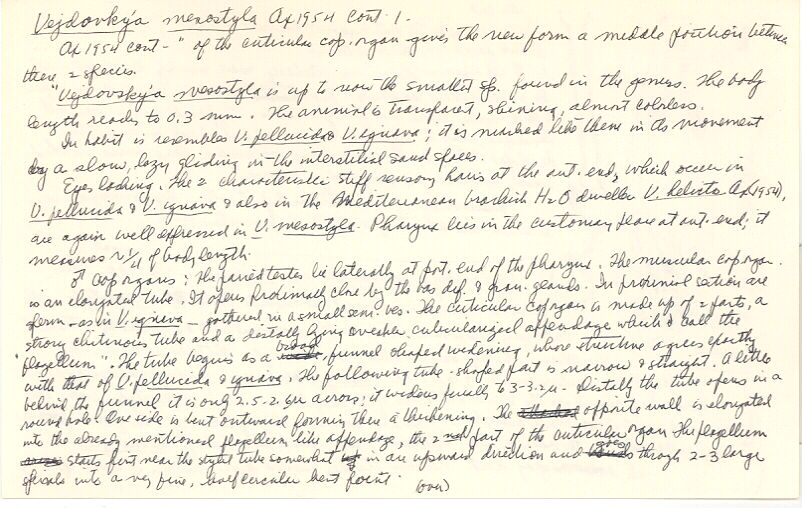 Vejdovky'a mesostyla Ax 1954 cont 1.
Ax 1954 cont - " of the cuticular cop. organ gives the new form a middle position between
there 2 species.
"Vejdovsky'a mesostyla is up to now the smallest sp. found in the genus. The body
length reaches to 0.3 mm. The animal is transparent, shining, almost colorless.
In habit is resembles V. pellucida & V. ignava; it is marked like them in its movement
by a slow, lazy gliding in the interstitial sand spaces.
Eyes lacking. The 2 characteristic stiff sensory hairs at the ant. end, which occur in
V. pellucida & V. ignava & also in the Mediterranean brackish H2O dweller V. helicto Ax (1954),
are again well expressed in V. mesostyla. Pharynx lies in the customary place at ant. end; it
measures ~ 1/4 of body length.
♂ cop organs: The paired testes lie laterally at post. end of the pharynx. The muscular cop organ
is an elongated tube. It opens proximally close by the vas def. & gran. glands. In proximal section are
sperm - as in V. ignava - gathered in a small sem. ves. The cuticular cop organ is made up of 2 parts, a
strong chitinous tube and a distally lying cuticularized appendage which I call the
flagellum". The tube begins as a broad, funnel shaped widening, whose structure agrees partly
with that of V. pellucida & ignava. The following tube-shaped part is narrow & straight. A little
behind the funnel it is only 2.5-2.6µ across; it widens finally to 3-3.2µ - Distally the tube opens in a
round hole. One side is bent outward forming there a thickening. The opposite wall is elongated
into the already mentioned flagellum like appendage, the 2nd part of the cuticular organ. The flagellum
starts first near the stylet tube somewhat in an upward direction and goes through 2-3 large
spirals into a very fine, half circular bent point.
(over)